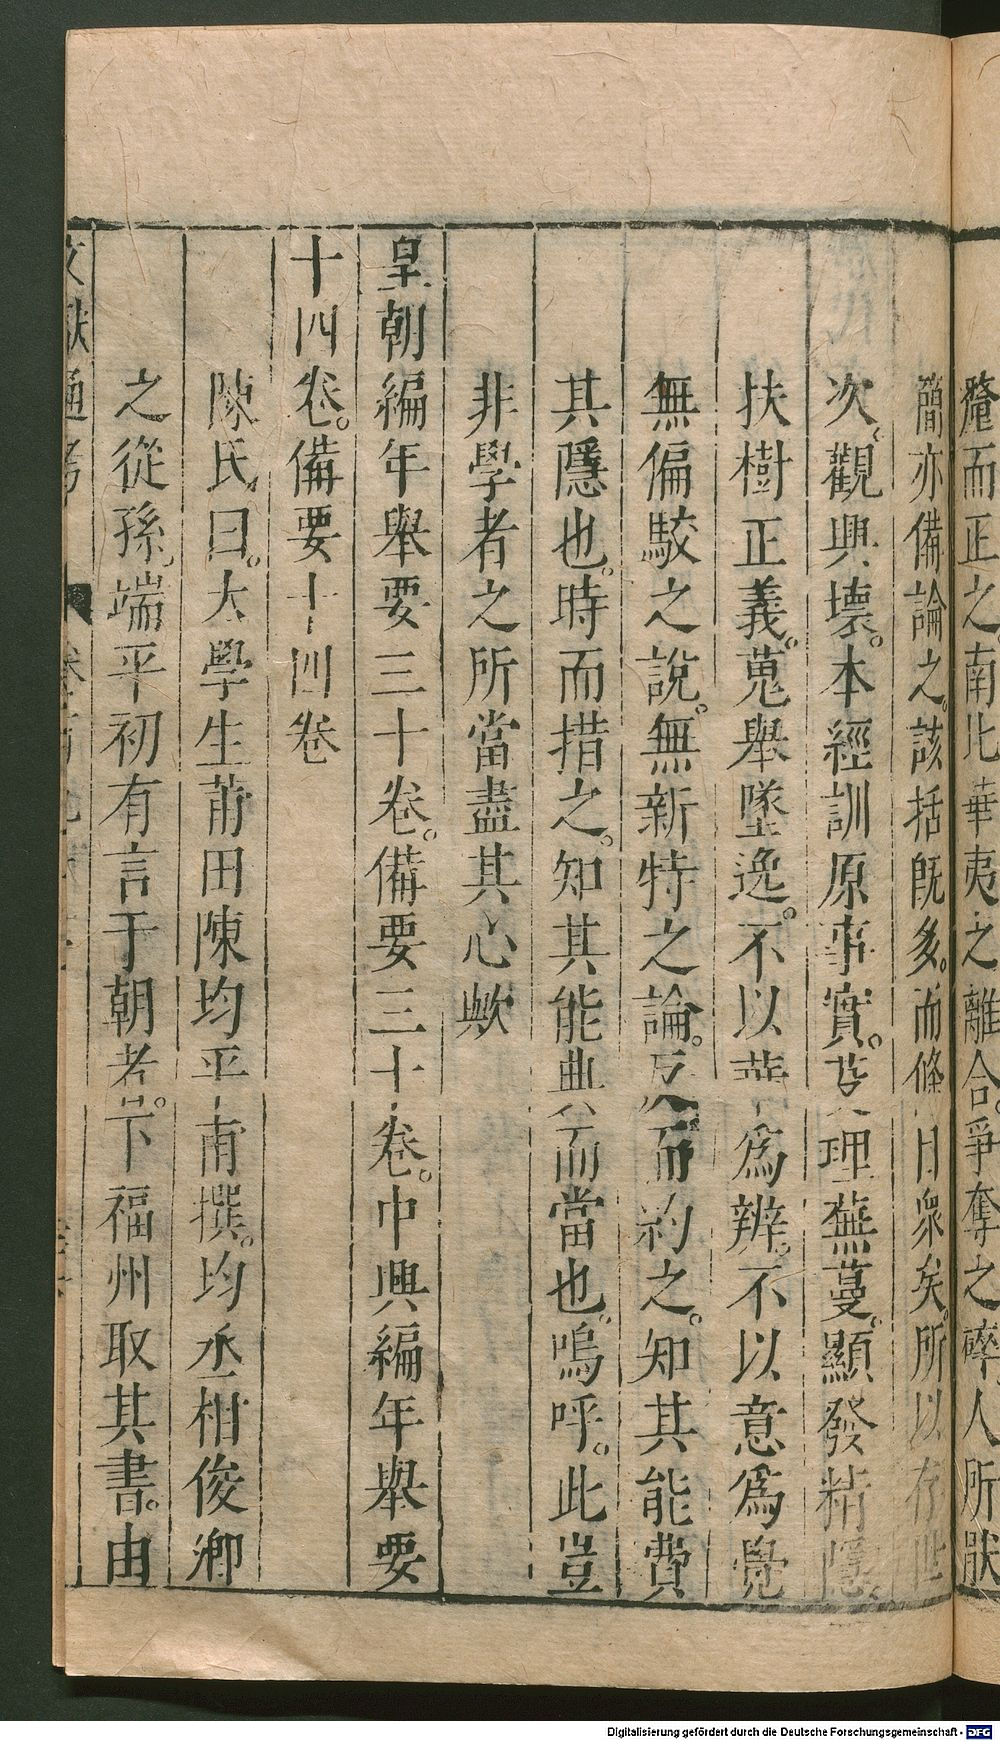 氂而正之南北華夷之離合。爭奪之碎。人所厭
簡亦備論之。該括旣多。而條目衆矣。所以存世
次。觀興壞。本經訓原事實。芟理蕪蔓。顯發精隱。
扶樹正義。蒐舉墜逸。不以華爲辨。不以意爲覺
無偏駮之說。無新特之論。反而約之。知其能費
其隱也。時而措之。知其能典而當也。嗚呼。此豈
非學者之所當盡其心歟
皇朝編年舉要三十卷。備要三十卷。中興編年舉要
十四卷。備要十四卷
陳氏曰。太學生莆田陳均平甫撰。均丞相俊卿
之從孫。端平初有言于朝者。下福州取其書。由
文獻通考 卷一百九十三
Digitalisierung gefördert durch die Deutsche Forschungsgemeinschaft - DFG